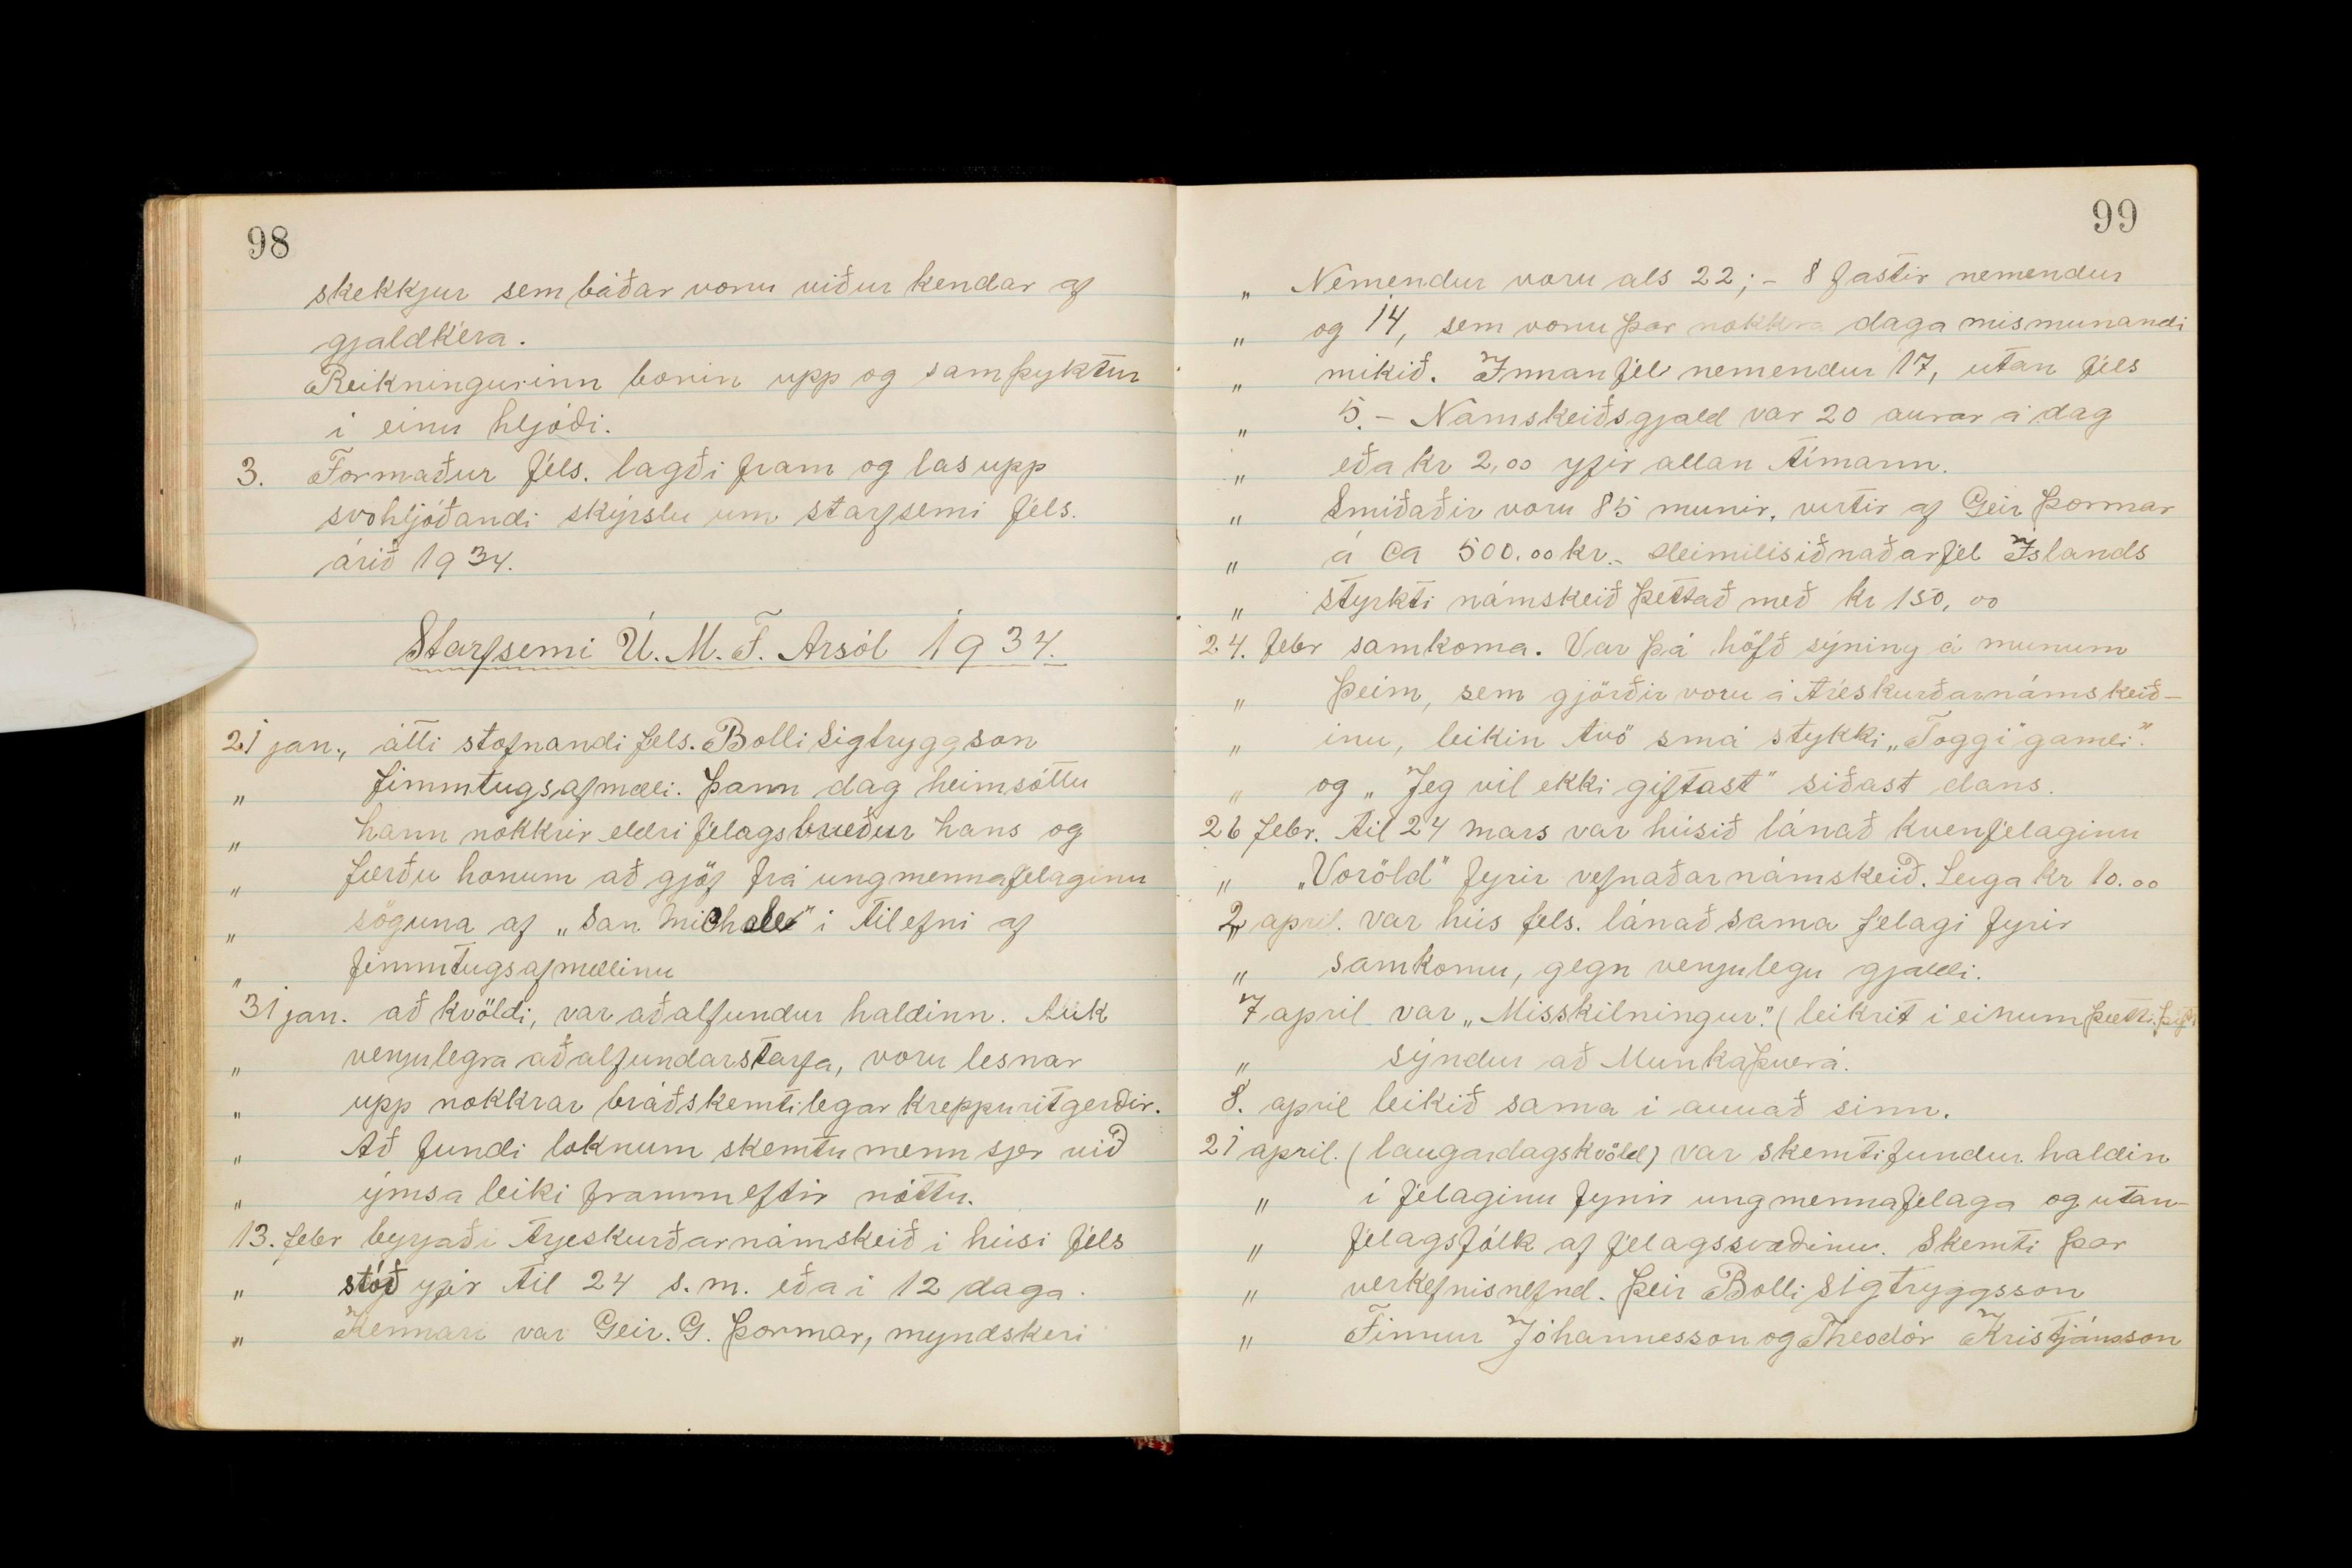 98
skekkjur sem báðar voru viður kendar af
gjaldkéra.
Reikningurinn borin upp og samþyktur
í einu hljóði.
3. Formaður féls. lagði fram og las upp
svohljóðandi skýrslu um starfsemi féls.
árið 1934.
Starfsemi U. M. F. Arsól 1934.
21 jan., átti stofnandi féls. Bolli Sigtryggson
„ fimmtugsafmæli. Þann dag heimsóttu
„ hann nokkrir eldri félagsbræður hans og
„ færðu honum að gjöf frá ungmennafelaginu
„ söguna af „San Michele" i tilefni af
„ fimmtugsafmælinu
31 jan. að kvöldi, var aðalfundur haldinn. Auk
„ venjulegra aðalfundarstarfa, voru lesnar
„ upp nokkrar bráðskemtilegar kreppuritgerðir.
„ Að fundi loknum skemtu menn sjer við
„ ýmsa leiki framm eftir nóttu.
13. febr byrjaði trjeskurðarnámskeið i húsi féls
„ stóð yfir til 24 s.m. eða i 12 daga.
„ Kennari var Geir. G. Þormar, myndskeri
99
„ Nemendur voru als 22; - 8 fastir nemendur
„ og 14, sem voru þar nokkra daga mismunandi
„ mikið. Innan fél nemendur 17, utan féls
„ 5. - Námskeiðsgjald var 20 aurar á dag
„ eða kr 2,00 yfir allan tímann.
„ Smíðaðir voru 85 munir, virtir af Geir Þormar
„ á ca 500.00 kr. - Heimilisiðnaðarfél Íslands
„ styrkti námskeið þettað með kr 150,00
24. febr samkoma. Var þá höfð sýning á munum
„ þeim, sem gjörðir voru á tréskurðarnámskeið-
„ inu, leikin tvö smá stykki „Toggi gamli".
„ og „Jeg vil ekki giftast" siðast dans.
26 febr. til 24 mars var húsið lánað kvenfélaginu
„ „Voröld" fyrir vefnaðarnámskeið. Leiga kr 10.00
2 april. var hús fels. lánað sama félagi fyrir
„ samkomu, gegn venjulegu gjaldi.
7 april var „Misskilningur". (leikrit i einum þætti.
„ sýndur að Munkaþverá.
8. april leikið sama i annað sinn.
21 april. (laugardagskvöld) var skemtifundur haldin
„ i félaginu fyrir ungmennafélaga og utan-
„ félagsfólk af félagssvæðinu. Skemti þar
„ verkefnisnefnd. Þeir Bolli Sigtryggsson
„ Finnur Jóhannesson og Theodór Kristjánsson